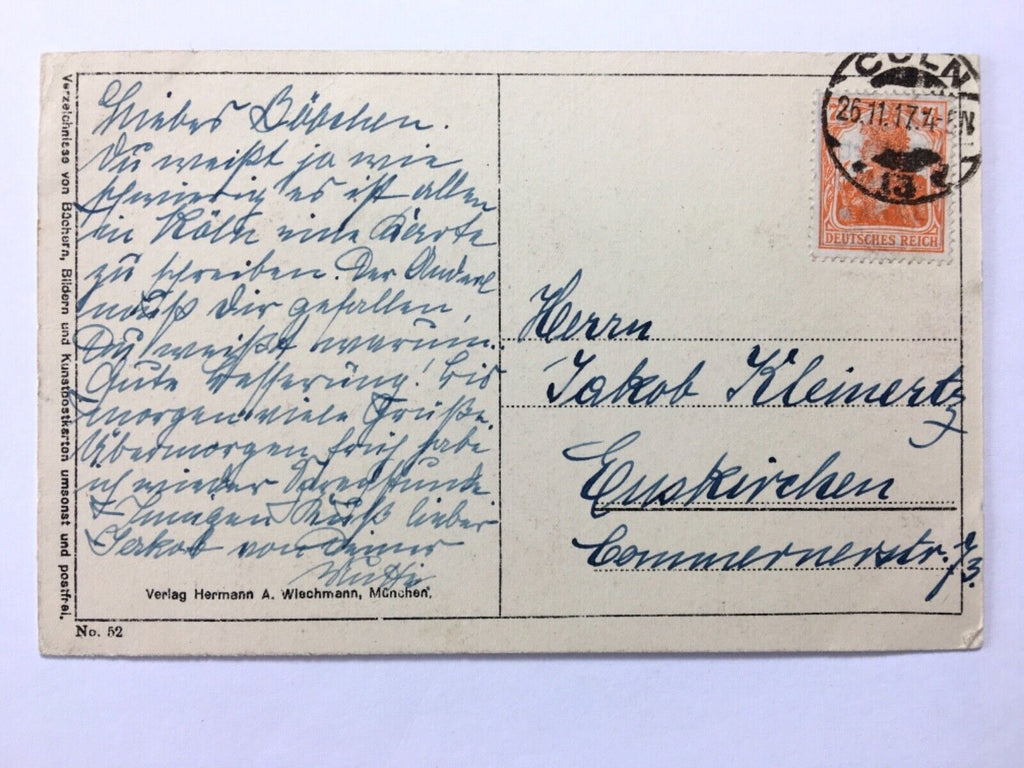 Liebes Böbchen.
Du weißt ja wie
schwierig es ist allen
in Köln eine Karte
zu schreiben. Der Anderl
muß Dir gefallen,
Du weißt warum.
Gute Besserung! Bis
morgen viele Grüße.
Übermorgen früh habe
ich wieder
Innigen Kuß lieber
Jakob von Deiner
Mutti
Verlag Hermann A. Wiechmann, München.
No. 52
Verzeichnisse von Büchern, Bildern und Kunstpostkarten umsonst und postfrei.
CÖLN
26.11.17.4-5N
13
DEUTSCHES REICH
Herrn
Jakob Kleinertz
Euskirchen
Commernerstr. 73.